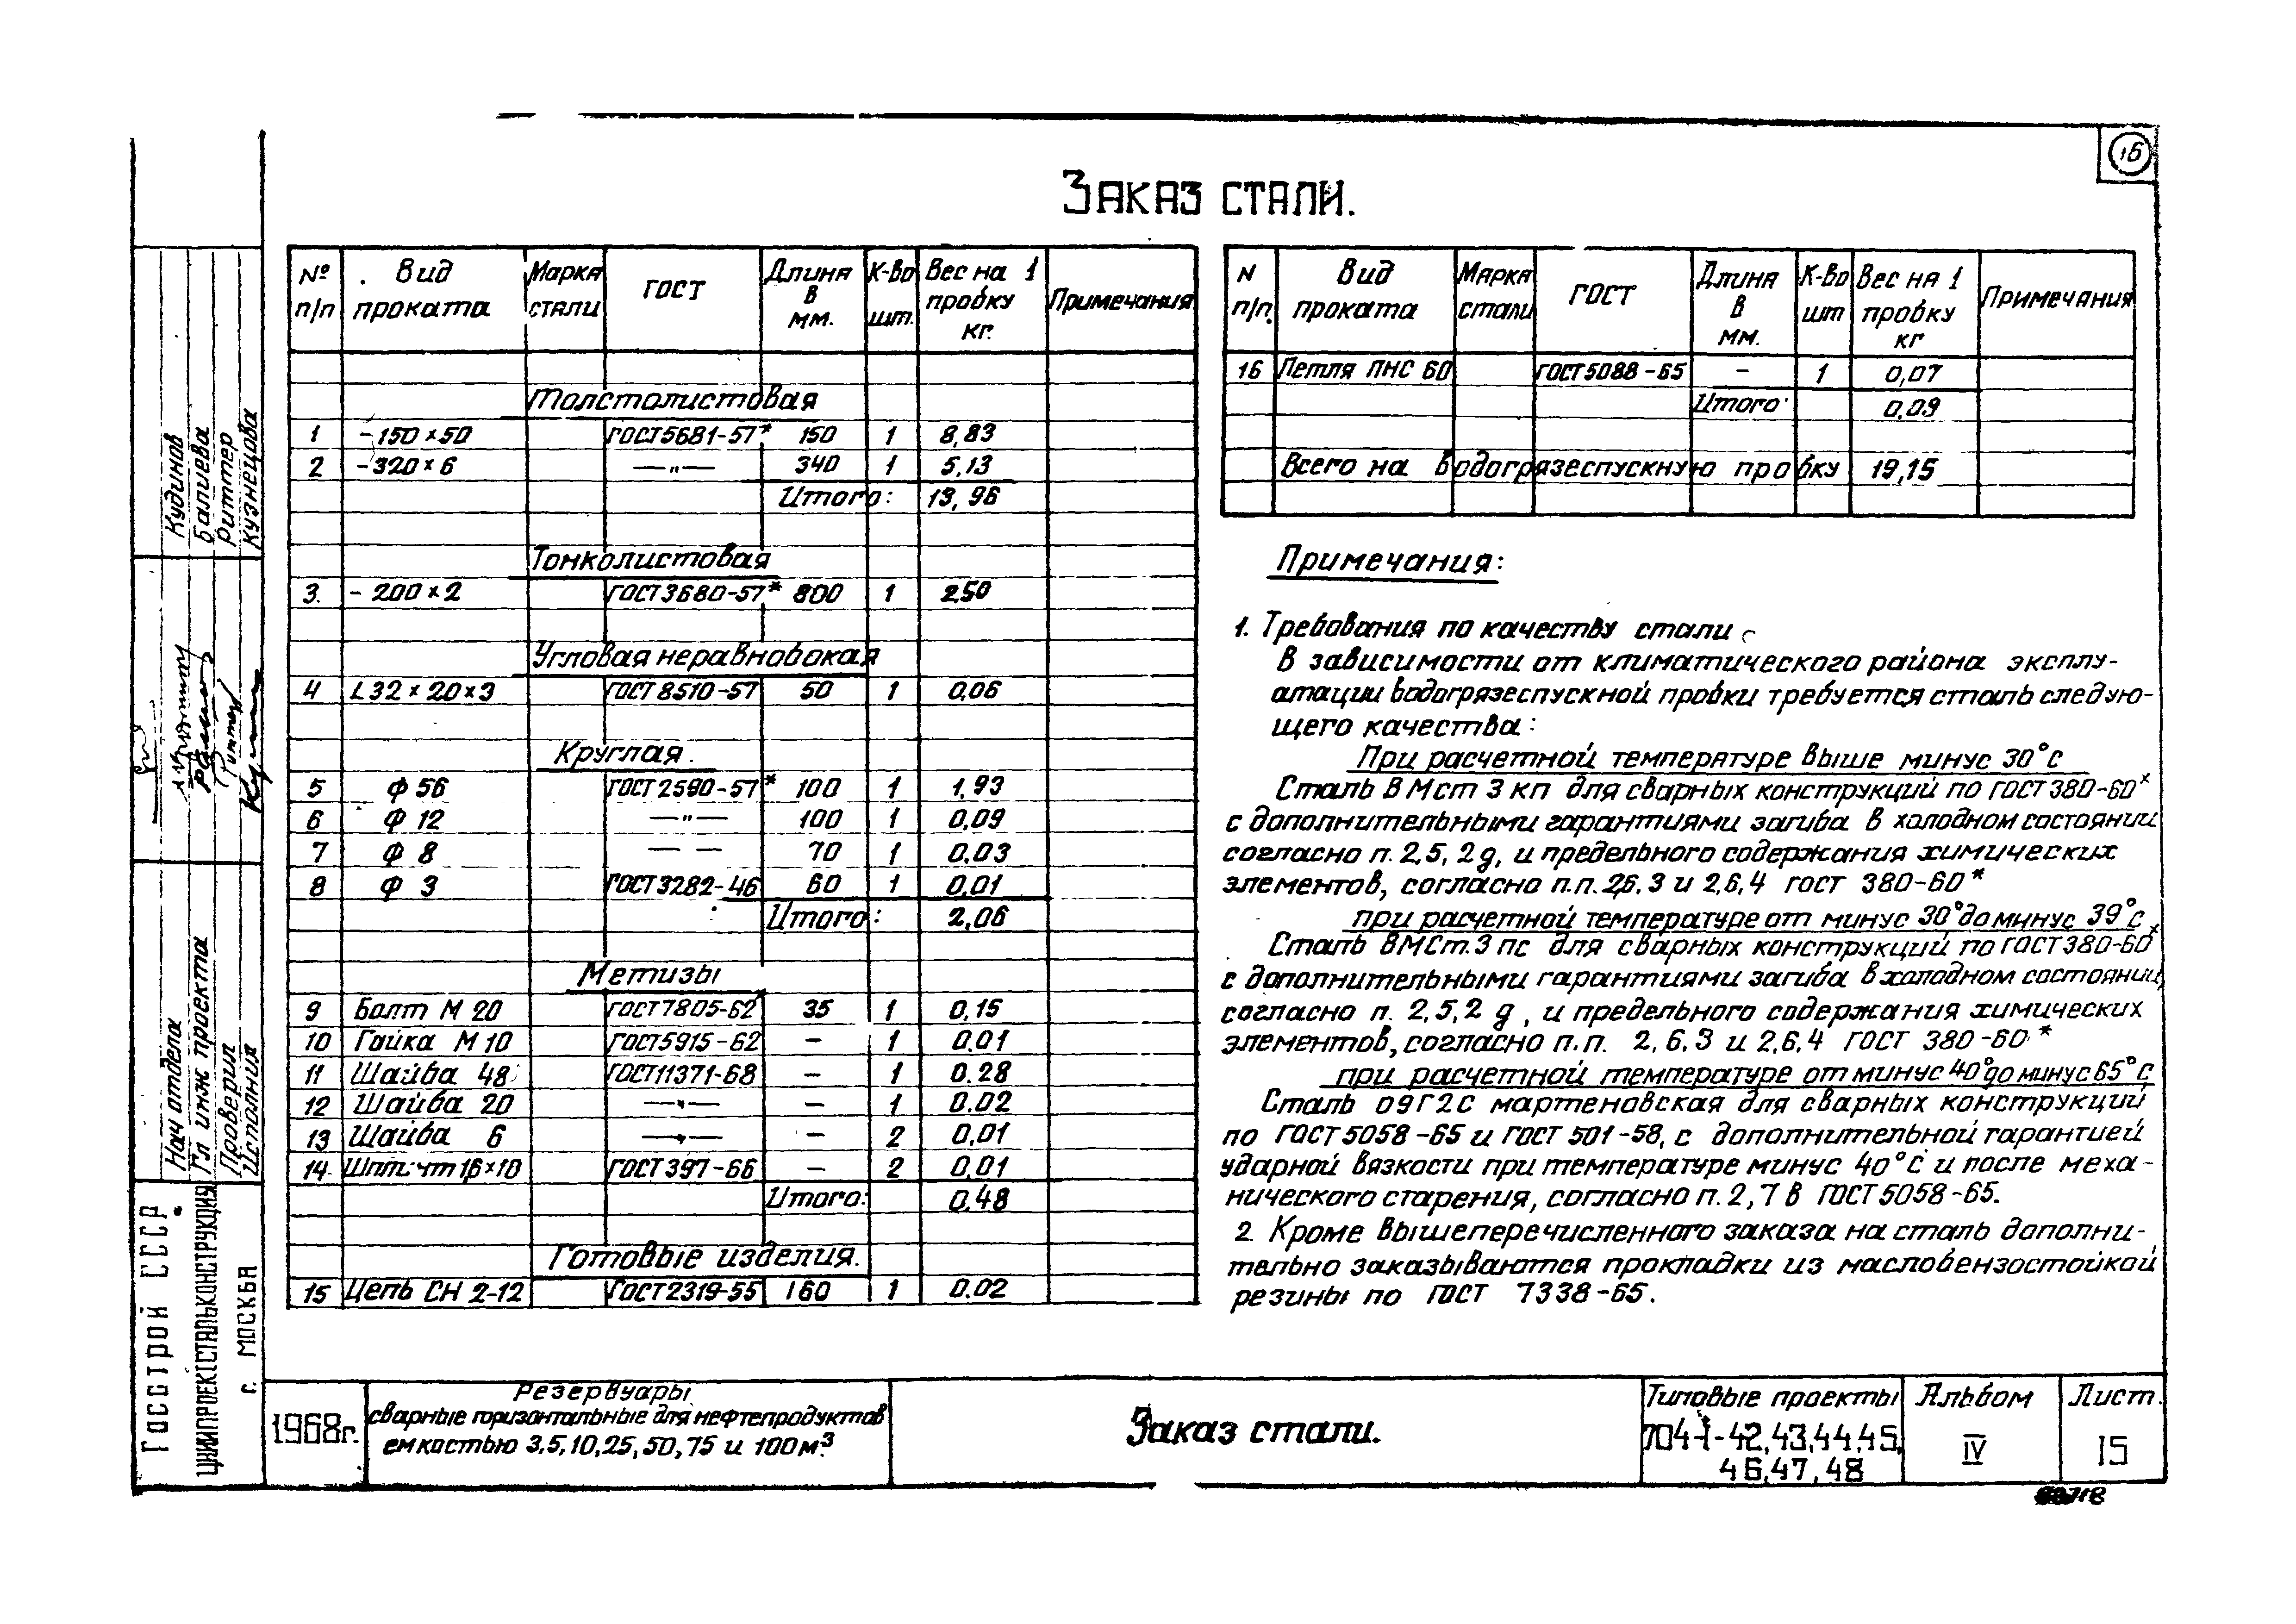 16
Заказ стали.
№ п/п Вид проката Марка стали ГОСТ Длина в мм. К-во шт. Вес на 1 пробку кг. Примечания
Толстолистовая
1 -150×50 ГОСТ5681-57* 150 1 8,83
2 -320×6 —"— 340 1 5,13
Итого: 13,96
Тонколистовая
3. -200×2 ГОСТ3680-57* 800 1 2,50
Угловая неравнобокая
4 L32×20×3 ГОСТ8510-57 50 1 0,06
Круглая.
5 ф56 ГОСТ2590-57* 100 1 1,93
6 ф12 —"— 100 1 0,09
7 ф8 — — 70 1 0,03
8 ф3 ГОСТ3282-46 60 1 0,01
Итого: 2,06
Метизы
9 Болт М20 ГОСТ7805-62* 35 1 0,15
10 Гайка М10 ГОСТ5915-62 - 1 0.01
11 Шайба 48 ГОСТ11371-68 - 1 0.28
12 Шайба 20 —"— - 1 0.02
13 Шайба 6 —"— - 2 0,01
14 Шплинт 16×10 ГОСТ397-66 - 2 0,01
Итого: 0,48
Готовые изделия.
15 Цепь СН 2-12 ГОСТ2319-55 160 1 0.02
N п/п. Вид проката Марка стали ГОСТ Длина в мм. К-во шт Вес на 1 пробку кг Примечания
16 Петля ПНС 60 ГОСТ5088-65 - 1 0,07
Итого: 0,09
Всего на водогрязеспускную пробку 19,15
Примечания:
1. Требования по качеству стали
В зависимости от климатического района эксплу-
атации водогрязеспускной пробки требуется сталь следую-
щего качества:
При расчетной температуре выше минус 30°с
Сталь ВМст3кп для сварных конструкций по ГОСТ380-60*
с дополнительными гарантиями загиба в холодном состоянии
согласно п. 2,5,2д, и предельного содержания химических
элементов, согласно п.п. 2,6,3 и 2,6,4 гост 380-60*
при расчетной температуре от минус 30° до минус 39°с
Сталь ВМСт.3пс для сварных конструкций по ГОСТ380-60*
с дополнительными гарантиями загиба в холодном состоянии,
согласно п. 2,5,2 д, и предельного содержания химических
элементов, согласно п.п. 2,6,3 и 2,6,4 ГОСТ 380-60*
при расчетной температуре от минус 40° до минус 65°с
Сталь 09Г2С мартеновская для сварных конструкций
по ГОСТ5058-65 и ГОСТ 501-58, с дополнительной гарантией
ударной вязкости при температуре минус 40°с и после меха-
нического старения, согласно п. 2,7в ГОСТ5058-65.
2. Кроме вышеперечисленного заказа на сталь дополни-
тельно заказываются прокладки из маслобензостойкой
резины по ГОСТ 7338-65.
Нач отдела Кудинов
Гл инж проекта Балиева
Проверил Риттер
Исполния Кузнецова
Госстрой СССР
ЦНИИПРОЕКТСТАЛЬКОНСТРУКЦИЯ
г. МОСКВА
1968г.
Резервуары
сварные горизонтальные для нефтепродуктов
емкостью 3,5,10,25,50,75 и 100м³
Заказ стали.
Типовые проекты
704-1-42,43,44,45,
46,47,48
Альбом
IV
Лист.
15